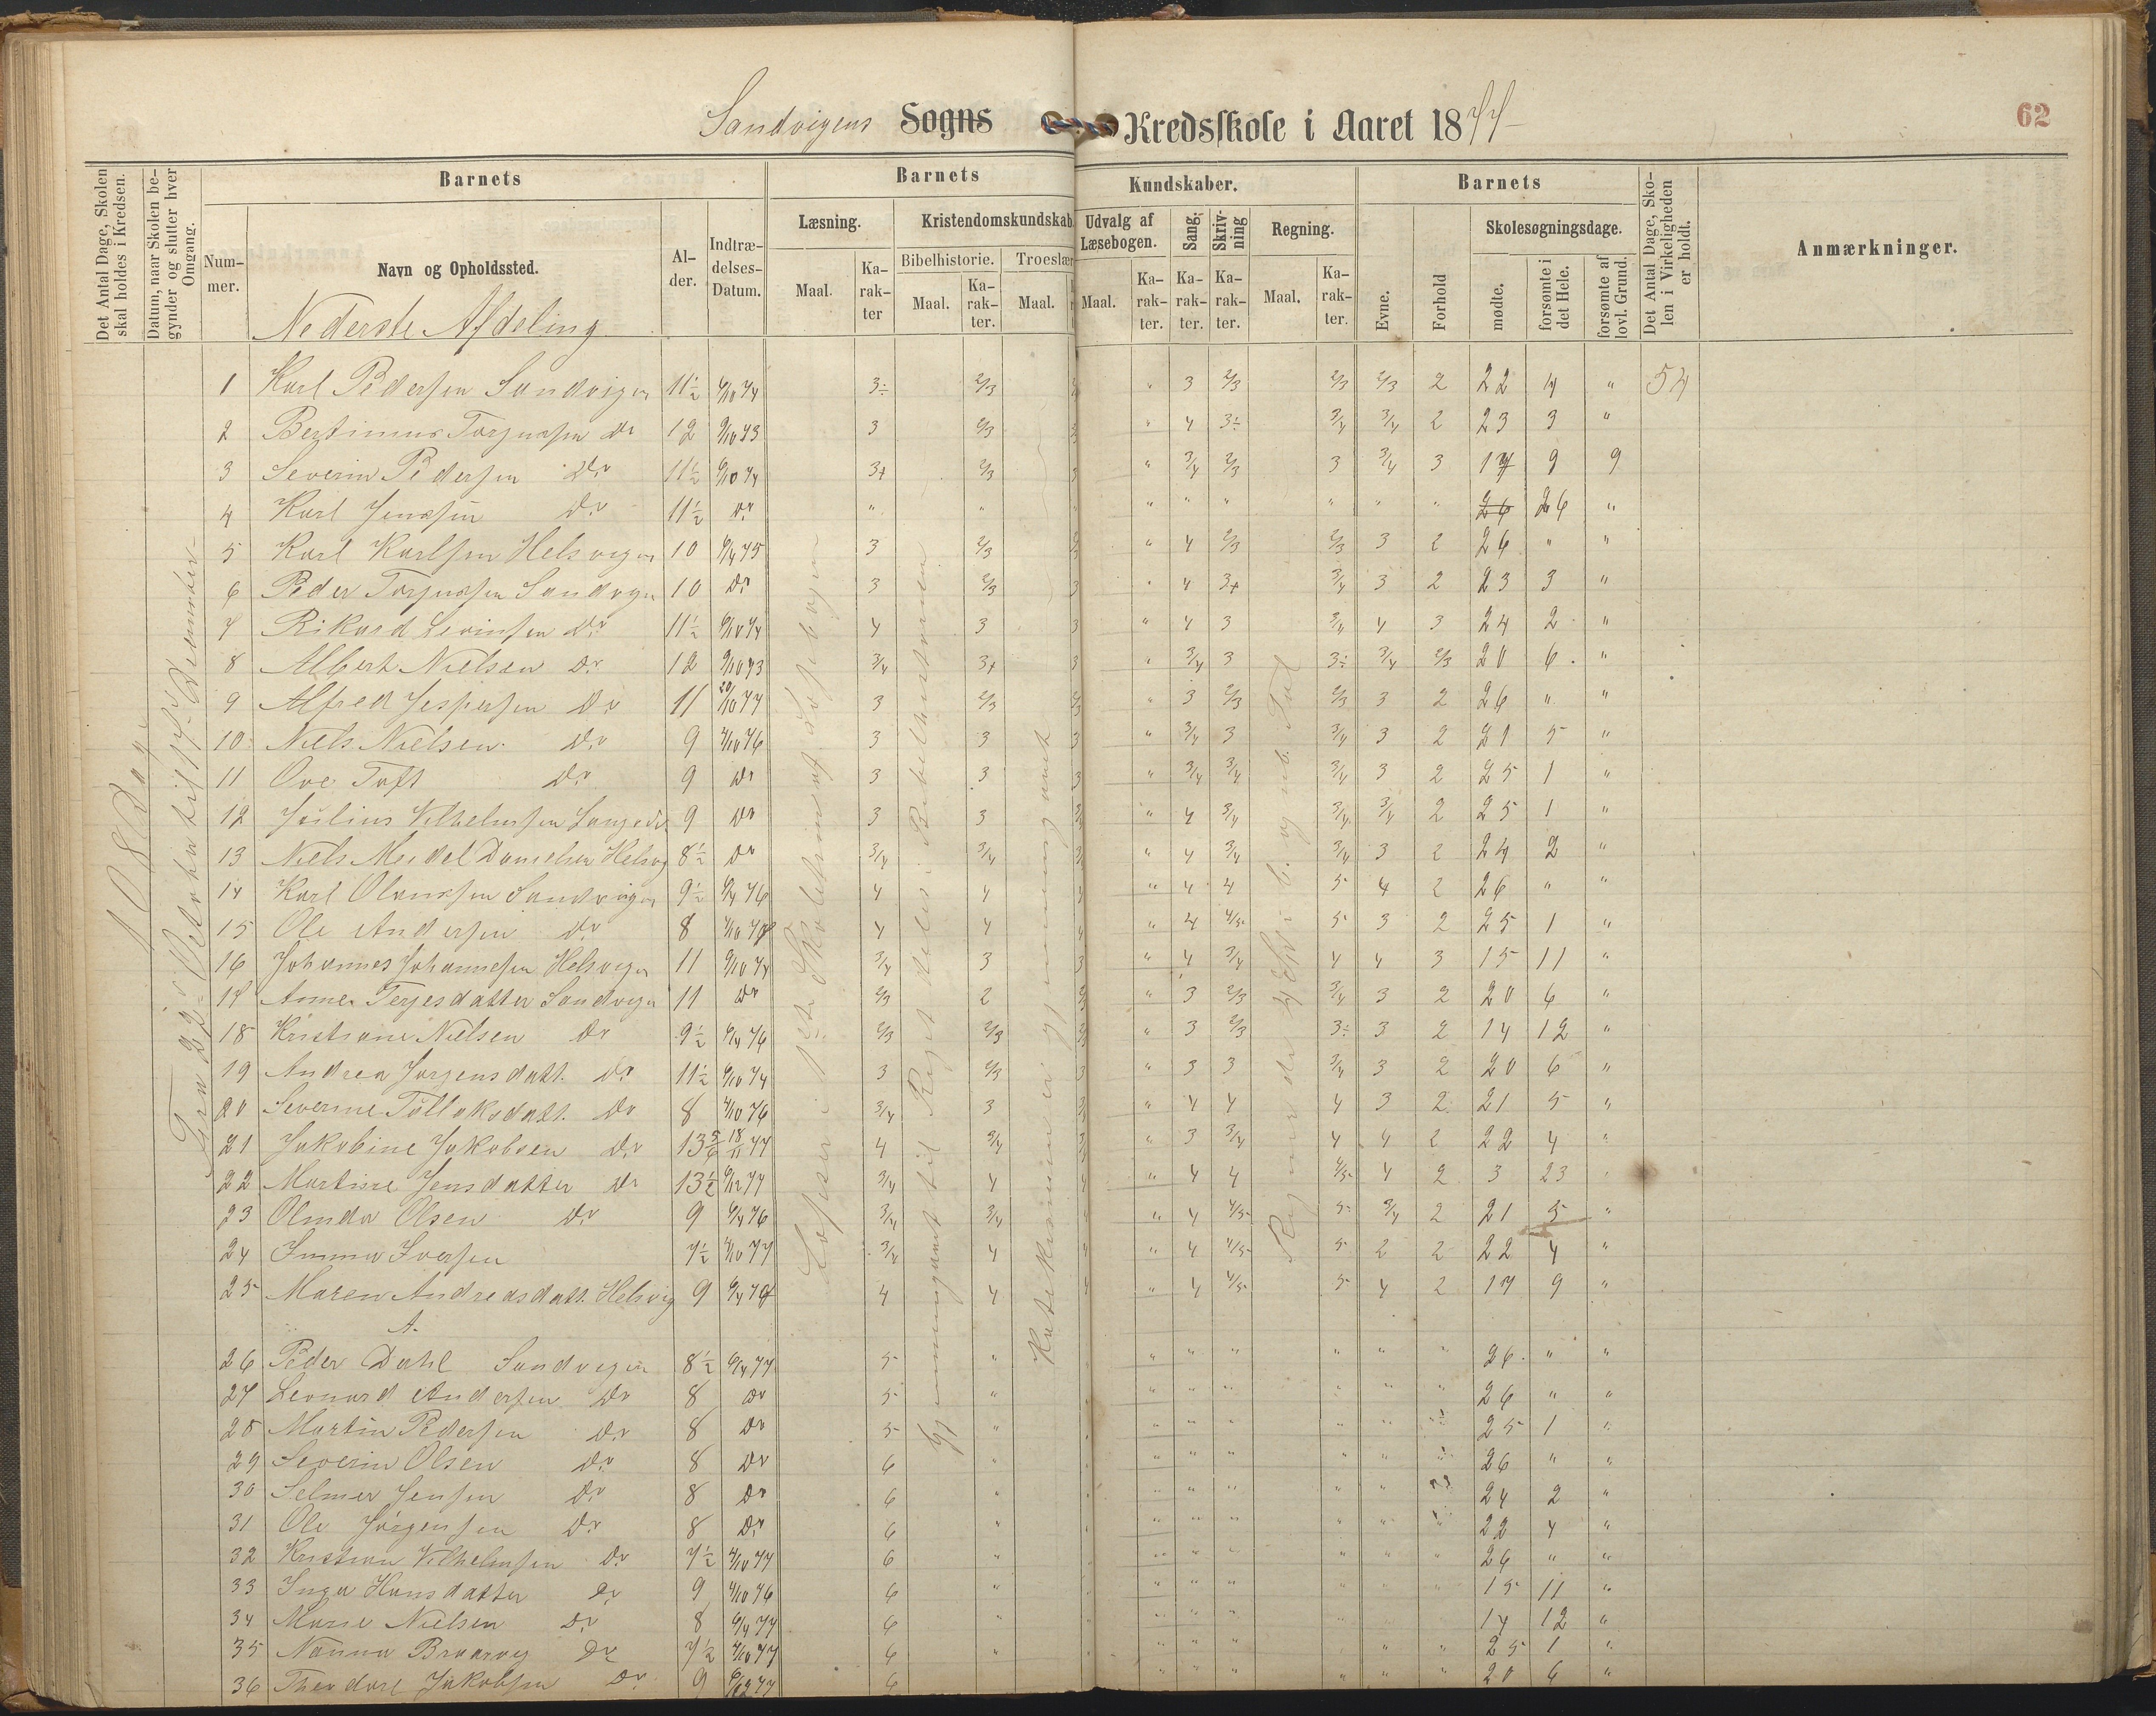 Sandvigens Sogns Kredsskole i Aaret 1877
62
Det Antal Dage, Skolen skal holdes i Kredsen.
Datum, naar Skolen begynder og slutter hver Omgang.
Barnets
Barnets
Kundskaber.
Barnets
Det Antal Dage, Skolen i Virkeligheden er holdt.
Anmærkninger.
Nummer.
Navn og Opholdssted.
Alder.
Indtrædelses-Datum.
Læsning.
Kristendomskundskab.
Udvalg af Læsebogen.
Sang.
Skrivning
Regning.
Evne.
Forhold
Skolesøgningsdage.
Maal.
Karakter
Bibelhistorie.
Troeslær
Maal.
Karakter.
Maal.
Maal.
Karakter.
Karakter.
Karakter.
Maal.
Karakter.
mødte.
forsømte i det Hele.
forsømte af lovl. Grund.
Nederste Afdeling
108 Dage
Fra 22de Oktober til 17de December
1 Karl Pedersen Sandvigen 11½ 6/10 74 3÷ 2/3 " 3 2/3 2/3 2/3 2 22 4 " 54
2 Bertinius Torjussen Do 12 9/10 73 3 2/3 " 4 3÷ 3/4 3/4 2 23 3 "
3 Severin Pedersen Do 11½ 6/10 74 3+ 2/3 3 " 3/4 2/3 3 3/4 3 17 9 9
4 Karl Jenssen Do 11½ Do " " " " " " " " 26 26 "
5 Karl Karlsen Helsvigen 10 6/4 75 3 2/3 " 4 2/3 2/3 3 2 26 " "
6 Peder Torjussen Sandvigen 10 Do 3 2/3 3 " 4 3+ 3/4 3 2 23 3 "
7 Rikard Levinsen Do 11½ 6/10 74 4 3 3 " 4 3 3/4 4 3 24 2 "
8 Albert Nielsen Do 12 9/10 73 3/4 3+ 3 " 3/4 3 3÷ 3/4 2/3 20 6 "
9 Alfred Jespersen Do 11 20/10 77 3 2/3 2/3 " 3 2/3 2/3 3 2 26 " "
10 Niels Nielsen Do 9 4/10 76 3 3 3 " 3/4 3 3/4 3 2 21 5 "
11 Ove Toft Do 9 Do 3 3 3 " 3/4 3/4 3/4 3 2 25 1 "
12 Julius Vilhelmsen 9 Do 3 3 " 4 3/4 3/4 3/4 2 25 1 "
13 Niels Meidel Danielsen Helsvig 8½ Do 3/4 3/4 " 4 3/4 3/4 3 2 24 2 "
14 Karl Olaussen Sandvigen 9½ 6/4 76 4 4 " 4 4 5 4 2 26 " "
15 Ole Andersen Do 8 4 4 4 " 4 4/5 5 3 2 25 1 "
16 Johannes Johannessen Helsvigen 11 9/10 74 3/4 3 3 " 4 3/4 4 4 3 15 11 "
17 Anne Terjesdatter Sandvigen 11 Do 2/3 2 " 3 2/3 3/4 3 2 20 6 "
18 Kristiane Nielsen Do 9½ 6/4 76 2/3 2/3 " 3 2/3 3÷ 3 2 14 12 "
19 Andrea Jørgensdatt. Do 11½ 6/10 74 3 2/3 3 " 3 3 3/4 3 2 20 6 "
20 Severine Tollaksdatt. Do 8 4/10 76 3/4 3 " 4 4 4 3 2 21 5 "
21 Jakobine Jakobsen Do 13 5/6 18/11 77 4 3/4 " 3 3/4 4 4 2 22 4 "
22 Martine Jensdatter Do 13½ 77 3/4 4 4 " 4 4 4/5 4 2 3 23
23 Olinda Olsen Do 9 6/4 76 3/4 3/4 " 4 4/5 5 3/4 2 21 5 "
24 Emma Iversen 7½ 4/10 77 3/4 4 4 " 4 4/5 5 2 2 22 4 "
25 Maren Andreasdatt. Helsvig 9 4 4 4 " 4 4/5 5 4 2 17 9 "
A.
26 Peder Dahl Sandvigen 8½ 6/4 77 5 " " " " " " " 26 " "
27 Leonard Andersen Do 8 Do 5 " " " " " " " 26 " "
28 Martin Pedersen Do 8 Do 5 " " " " " " " 25 1 "
29 Severin Olsen Do 8 Do 6 " " " " " " " 26 " "
30 Selmer Jensen Do 8 Do 6 " " " " " " " 24 2 "
31 Ole Jørgensen Do 8 Do 6 " " " " " " " 22 4 "
32 Kristian Vilhelmsen Do 7½ 4/10 77 6 " " " " " " " 26 " "
33 Inga Hansdatter Do 9 4/10 76 6 " " " " " " " 15 11 "
34 Marie Nielsen Do 8 6/4 77 6 " " " " " 14 12 "
35 Nanna Do 7½ 4/10 77 6 " " " " " " 25 1 "
36 Theodore Jakobsen Do 9 77 6 " " " " " " 20 6 "
Læser i Læsebogen
Gjennemgaaet til Riget deles. Bibelhistorien
Katekismen er gjennemgaaet
Regner de 4 Sp. i b. og ub. Tal